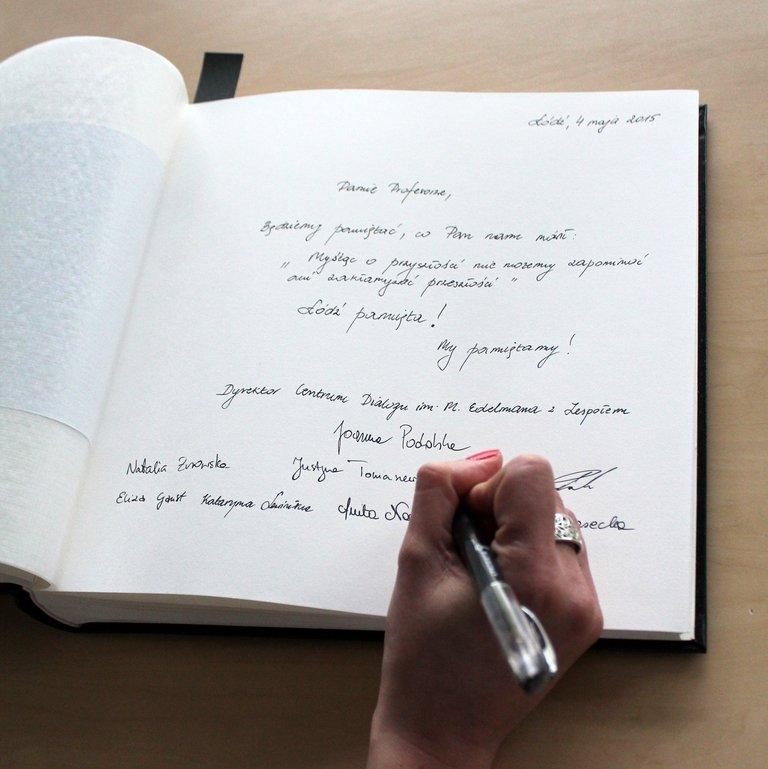 Łódź, 4 maja 2015
Panie Profesorze,
Będziemy pamiętać, co Pan nam mówił:
„Myśląc o przyszłości nie możemy zapominać
ani zakłamywać przeszłości"
Łódź pamięta!
My pamiętamy!
Dyrektor Centrum Dialogu im. M. Edelmana z Zespołem
Joanna Podolska
Natalia Justyna
Eliza Gaust Katarzyna Anita